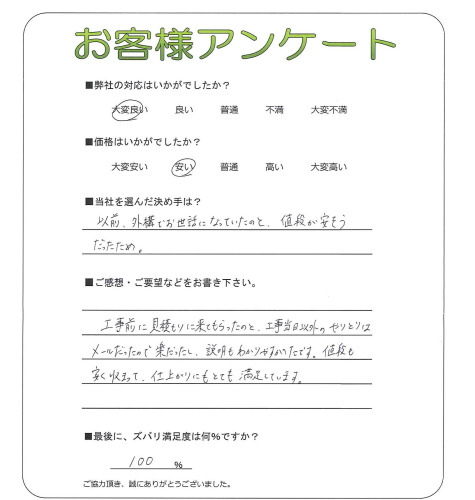 お客様アンケート
■弊社の対応はいかがでしたか？
大変良い 良い 普通 不満 大変不満
■価格はいかがでしたか？
大変安い 安い 普通 高い 大変高い
■当社を選んだ決め手は？
以前、外構でお世話になっていたのと、値段が安そう
だったため。
■ご感想・ご要望などをお書き下さい。
工事前に見積もりに来てもらったのと、工事当日以外のやりとりは
メールだったので楽だったし、説明もわかりやすかったです。値段も
安く収まって、仕上がりにもとても満足しています。
■最後に、ズバリ満足度は何%ですか？
100 %
ご協力頂き、誠にありがとうございました。